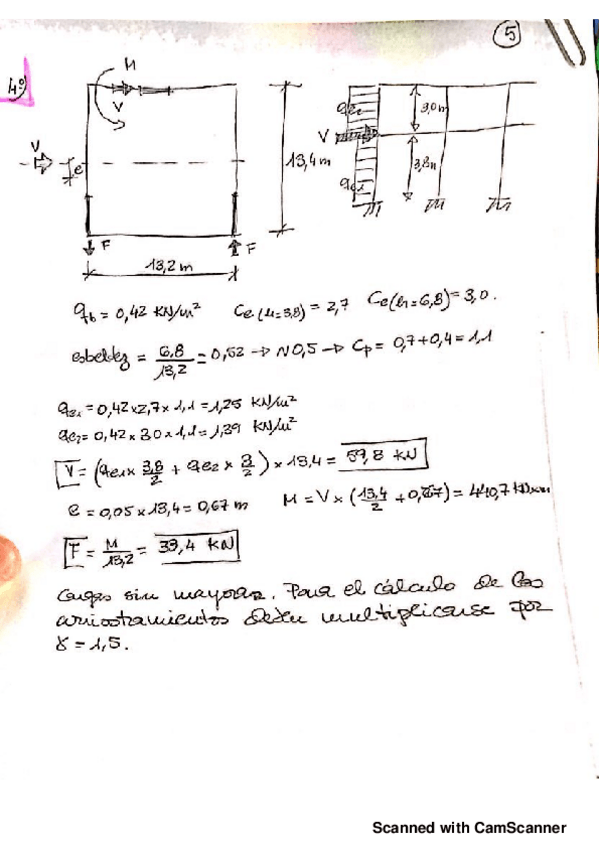 5
4º
M
V
V
e
F
F
13,2 m
13,4 m
qe2
3,0 m
V
qe1
3,8 m
qb = 0,42 KN/m² Ce (h=3,8) = 2,7 Ce (h=6,8) = 3,0.
esbeltez = 6,8/13,2 = 0,52 → ∼0,5 → Cp = 0,7+0,4 = 1,1
qe1 = 0,42×2,7×1,1 = 1,25 KN/m²
qe2 = 0,42×3,0×1,1 = 1,39 KN/m²
V = (qe1 × 3,8/2 + qe2 × 3/2) × 13,4 = 59,8 KN
e = 0,05×13,4 = 0,67 m M = V × (13,4/2 + 0,67) = 440,7 KN×m
F = M/13,2 = 33,4 KN
Cargas sin mayorar. Para el cálculo de los
arriostramientos deben multiplicarse por
γ = 1,5.
Scanned with CamScanner